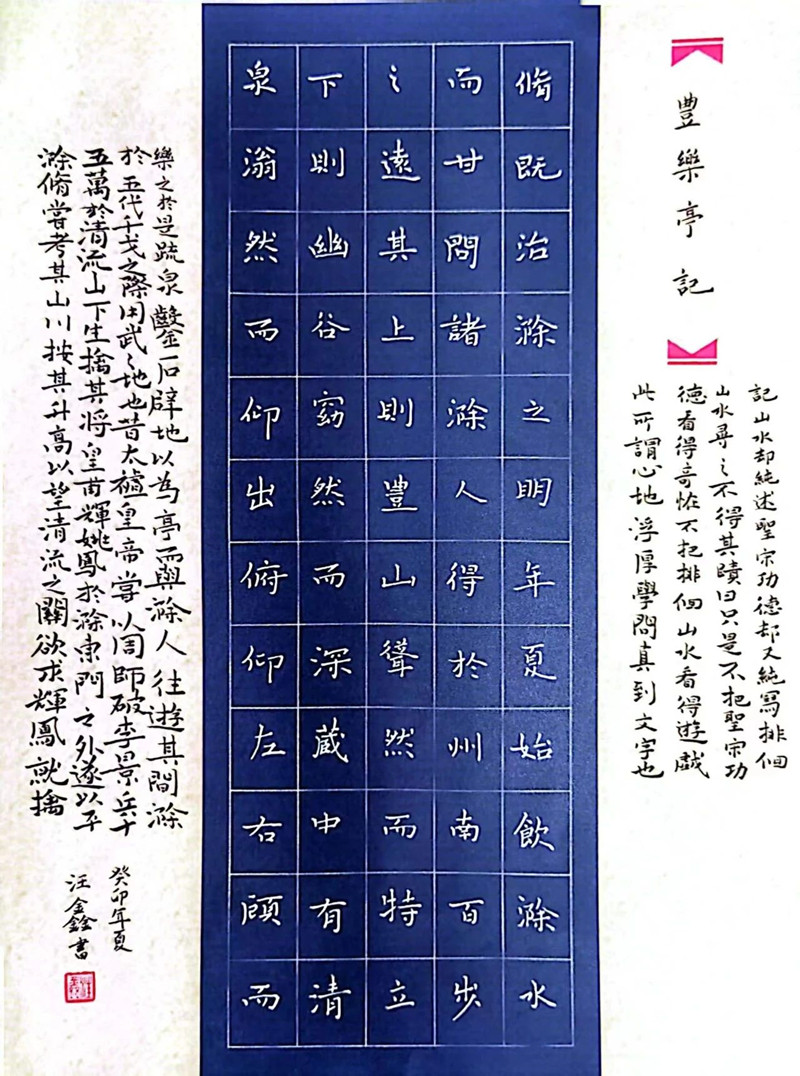 豐樂亭記
記山水却純述聖宗功德却又純寫排徊
山水尋之不得其賾曰只是不把聖宗功
德看得奇怪不把排徊山水看得遊戲
此所謂心地浮厚學問真到文字也
脩既治滁之明年夏始飲滁水
而甘問諸滁人得於州南百步
之遠其上則豐山聳然而特立
下則幽谷窈然而深蔵中有清
泉滃然而仰出俯仰左右顧而
樂之於是疏泉鑿石辟地以為亭而與滁人往遊其間滁
於五代干戈之際用武之地也昔太祖皇帝嘗以周師破李景兵十
五萬於清流山下生擒其將皇甫輝姚鳳於滁東門之外遂以平
滁脩嘗考其山川按其升高以望清流之關欲求輝鳳就擒
癸卯年夏
汪書